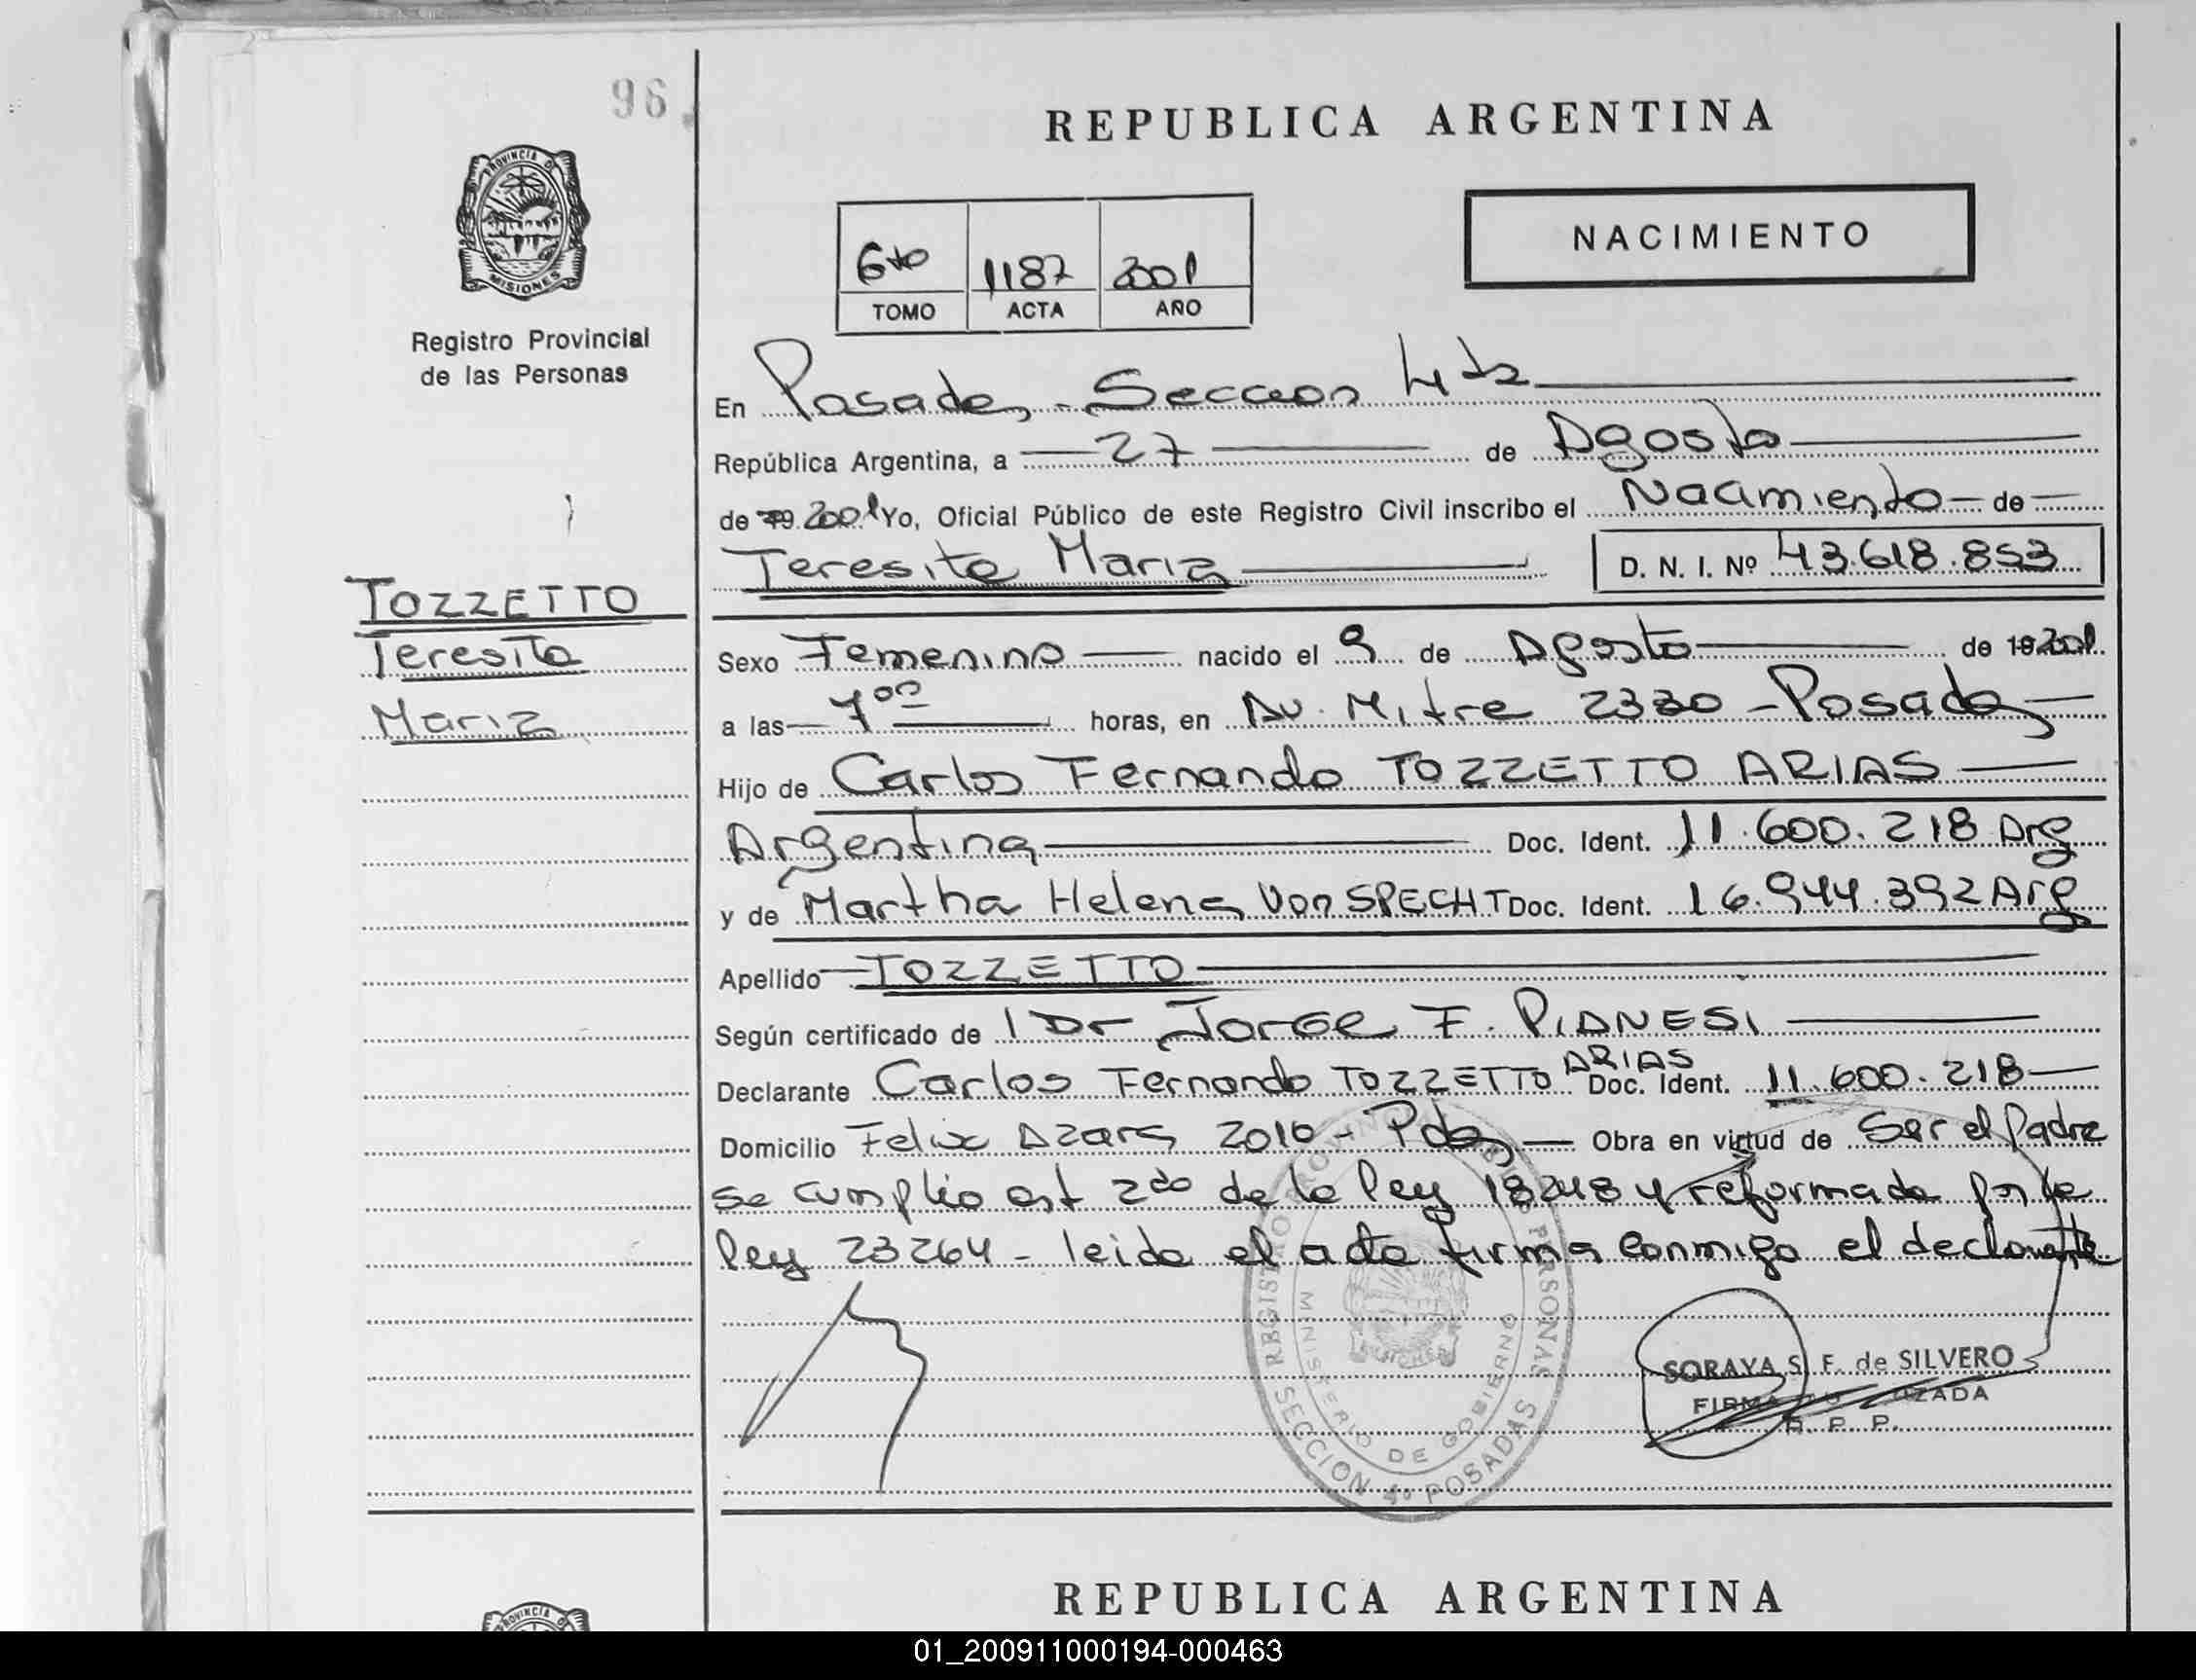 96
REPUBLICA ARGENTINA
PROVINCIA DE
MISIONES
Registro Provincial
de las Personas
6to 1187 2001
TOMO ACTA AÑO
NACIMIENTO
En Posadas - Seccion 4ta
República Argentina, a 27 de Agosto
de 19 2001 Yo, Oficial Público de este Registro Civil inscribo el Nacimiento de
Teresita Maria D. N. I. Nº 43.618.853
TOZZETTO
Teresita
Maria
Sexo Femenino nacido el 9 de Agosto de 19 2001
a las 7 00 horas, en Av. Mitre 2330 - Posadas
Hijo de Carlos Fernando TOZZETTO ARIAS
Argentina Doc. Ident. 11.600.218 Arg
y de Martha Helena Von SPECHT Doc. Ident. 16.944.392 Arg
Apellido TOZZETTO
Según certificado de l Dr Jorge F. PIANESI
Declarante Carlos Fernando TOZZETTO ARIAS Doc. Ident. 11.600.218
Domicilio Felix Azara 2010 - Pdas Obra en virtud de Ser el Padre
se cumplio art 2do de la ley 18248 y reformada por la
ley 23264 - leida el acta firma conmigo el declarante
REGISTRO PROVINCIAL DE LAS PERSONAS
MINISTERIO DE GOBIERNO
SECCION 4º POSADAS
SORAYA S. F. de SILVERO
R. P. P.
REPUBLICA ARGENTINA
PROVINCIA D
01_200911000194-000463